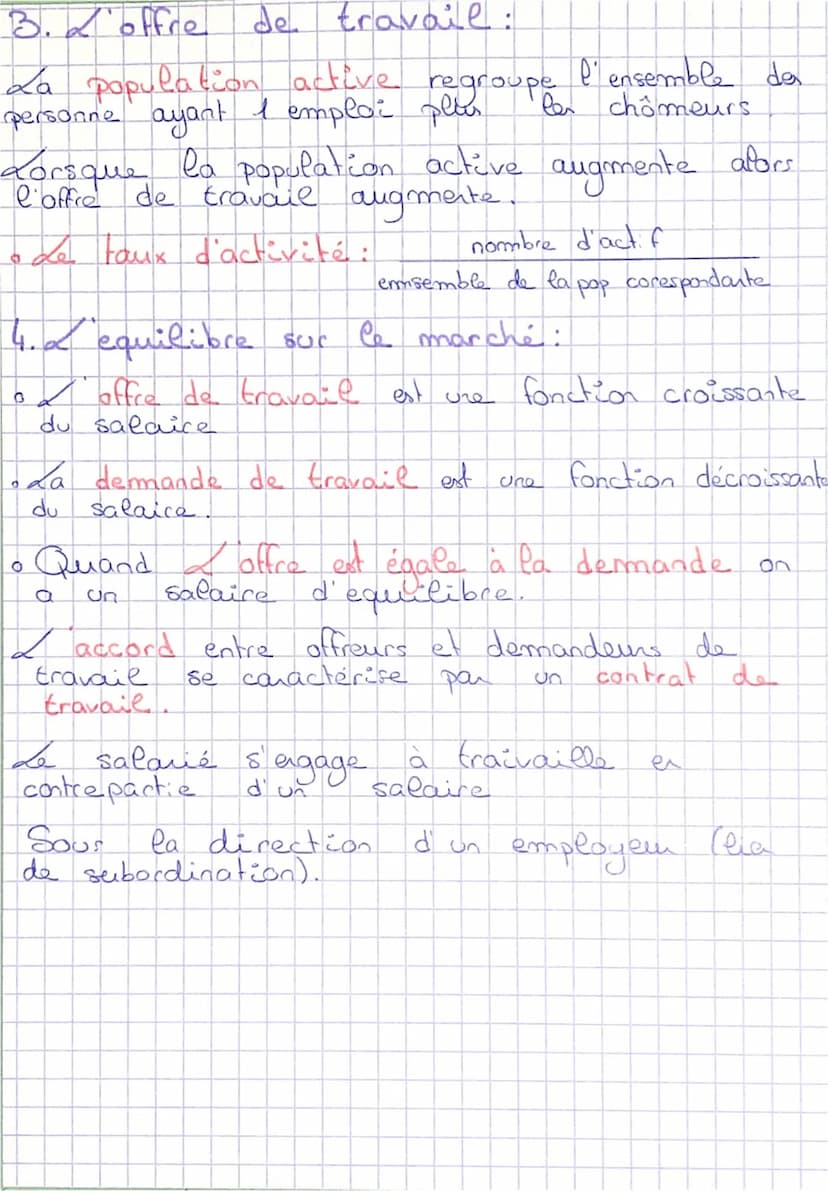 3. L'offre de travail :
La population active regroupe l'ensemble des
personne ayant 1 emploi plus les chômeurs.
Lorsque la population active augmente alors
l'offre de travail augmente.
Le taux d'activité : nombre d'actif
emnsemble de la pop corespondante
4. L'equilibre sur le marché :
L'offre de travail est une fonction croissante
du salaire
La demande de travail est une fonction décroissante
du salaire.
Quand L'offre est égale à la demande on
a un salaire d'equilibre.
L'accord entre offreurs et demandeurs de
travail se caractérise par un contrat de
travail.
Le salarié s'engage à traivaille en
contrepartie d'un salaire
Sous la direction d'un employeur (lien
de subordination).